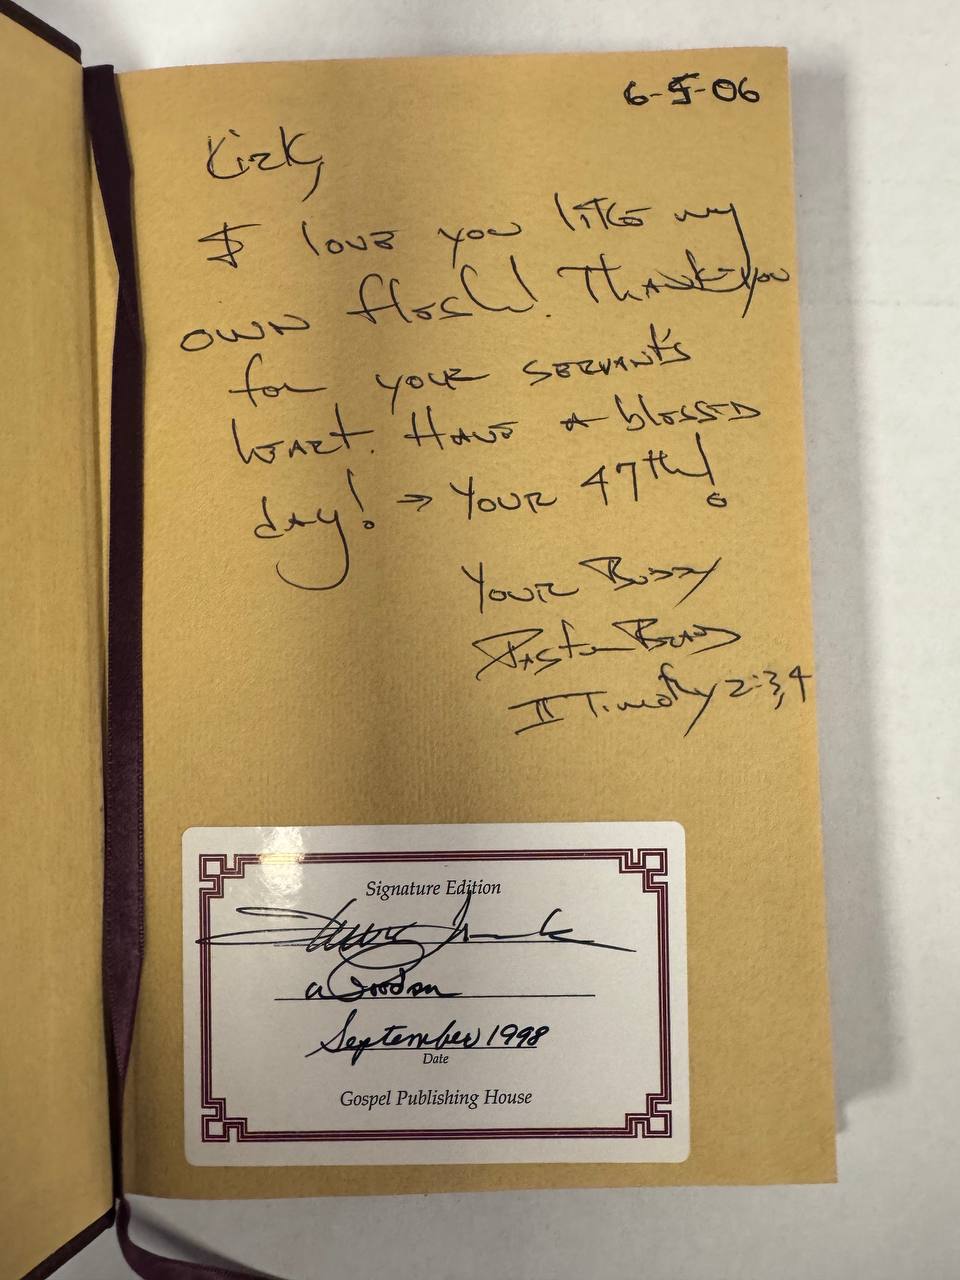 6-5-06
Kirk,
I love you like my
own flesh! Thank you
for your servant's
heart. Have a blessed
day! → Your 47th!
Your Buddy
Pastor Brad
II Timothy 2:3,4
Signature Edition
September 1998
Date
Gospel Publishing House